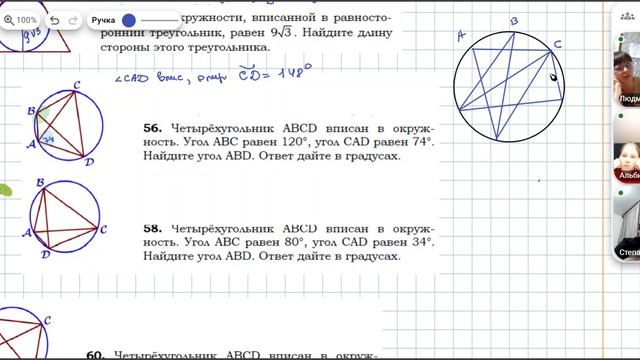 100%
Ручка
окружности, вписанной в равносто-
ронний треугольник, равен 9√3. Найдите длину
стороны этого треугольника.
9√3
∠CAD впис, опир CD = 148°
A
B
C
C
B
A
74
D
56. Четырёхугольник ABCD вписан в окруж-
ность. Угол ABC равен 120°, угол CAD равен 74°.
Найдите угол ABD. Ответ дайте в градусах.
B
A
C
D
58. Четырёхугольник ABCD вписан в окруж-
ность. Угол ABC равен 80°, угол CAD равен 34°.
Найдите угол ABD. Ответ дайте в градусах.
C
60. Четырёхугольник ABCD вписан в окруж-
Людм
Альби
Степа